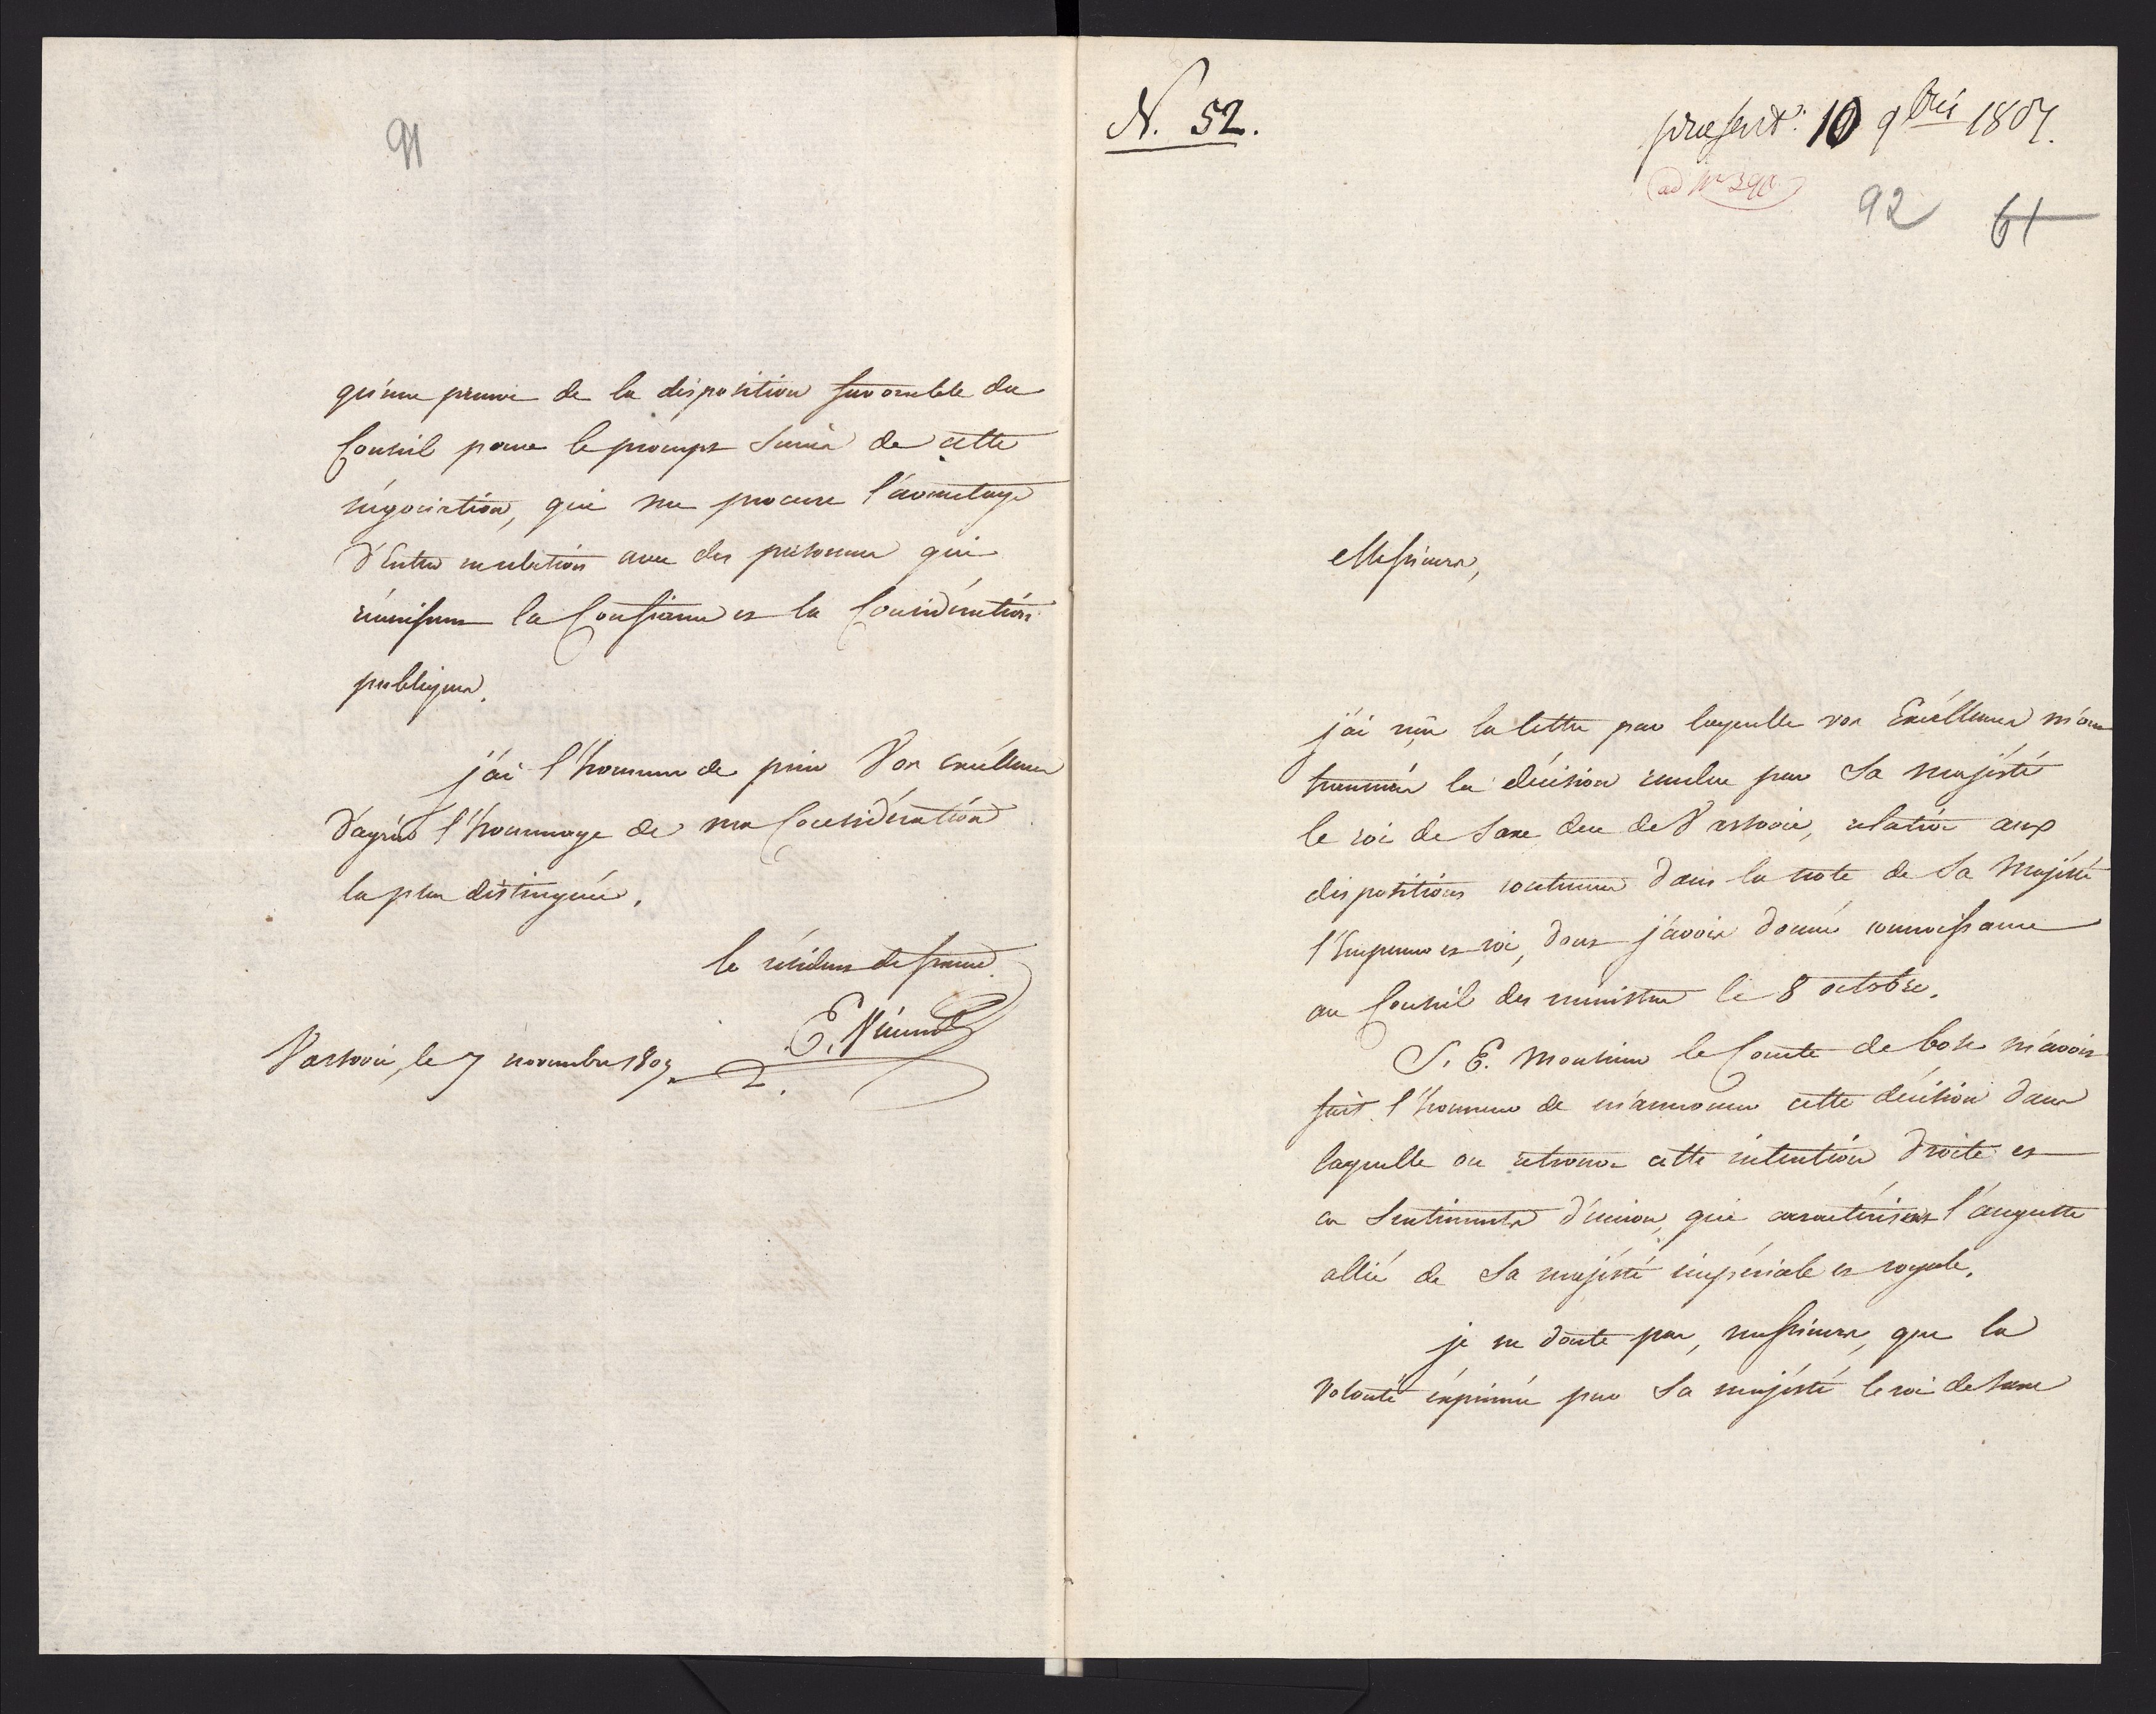 91
qu'une preuve de la disposition favorable du
Conseil pour le prompt succès de cette
négociation, qui me procure l'avantage
d'Entrer en relation avec des personnes qui
réunissent la Confiance et la Considération
publiques.
j'ai l'honneur de prier Vos excellences
d'agréer l'hommage de ma Considération
la plus distinguée.
le résident de france
E. Vincent
Varsovie, le 7 novembre 1807.
N. 52.
praesent: 10 9bris 1807.
ad Nr 390
92 61
Messieurs,
j'ai reçu la lettre par laquelle vos Excellences m'ont
transmis la décision rendue par Sa majesté
le roi de Saxe duc de Varsovie, relative aux
dispositions contenues dans la note de Sa Majesté
l'Empereur et roi, dont j'avois donné connoissance
au Conseil des ministres le 8 octobre.
S. E. Monsieur le Comte de bose m'avoit
fait l'honneur de m'annoncer cette décision dans
laquelle on retrouve cette intention droite et
ces Sentiments d'union, qui caractérisent l'auguste
allié de Sa majesté impériale et royale.
je ne doute pas, messieurs, que la
volonté exprimée par Sa majesté le roi de Saxe